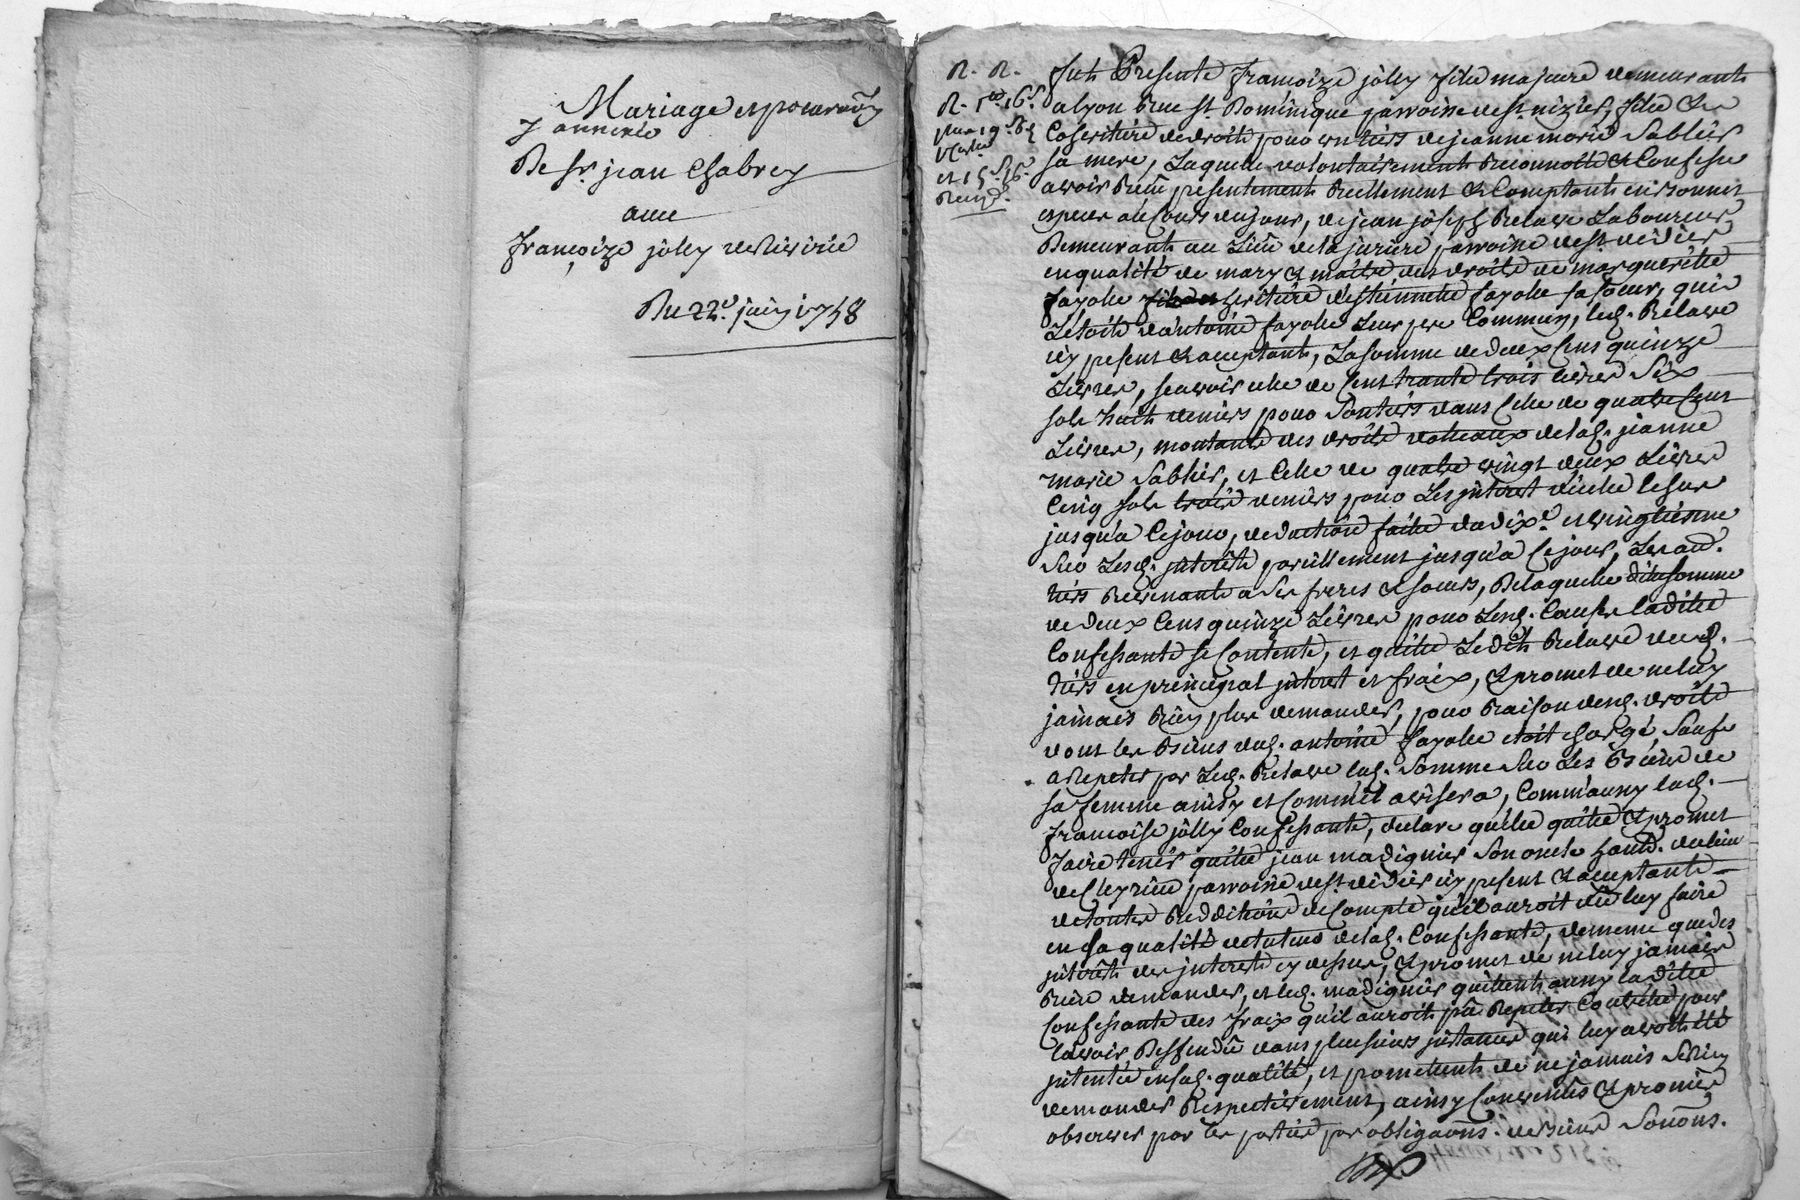 Mariage et procuraõn
y annexée
De Sr. jean Chabrey
avec
françoize jôlly de Rivirie
Du 22e. juin 1758
R. R.
R. 1lt 16s.
et 15s. 6d.
Reçu.
fut Presente françoize jôlly fille majeure demeurant
a lyon Rue st. Dominique parroisse de st. nizier, fille &
Coheritiere de droit pour un tiers de jeanne marie Sablier
sa mere, Laquelle volontairement Reconnoit & Confesse
avoir Reçû presentement Reellement & Comptant en bonnes
especes au Cours du jour, de jean jôseph Relave Laboureur
Demeurant au Lieu de la juriere parroisse de st. didier
en qualité de mary & maitre des droits de marguerite
fayolle heritiere d'estiennette fayolle sa soeur, qui
L'etoit d'antoine fayolle Leur pere Commun, led. Relave
icy present & acceptant, La somme de deux Cens quinze
Livres, sçavoir celle de Cent trante trois livres Six
sols huit deniers pour Son tiers dans Celle de quatre Cens
Livres, montant des droits dotteaux de lad. jeanne
marie Sablier, et Celle de quatre vingt deux Livres
Cinq sols trois deniers pour Les jnterest d'icelle Echus
jusqu'a Ce jour, deduction faite du dixe. et vingtiesme
Sur Lesd. jnterêts pareillement jusqu'a Ce jour, Les au.
tiers Revenants a Ses freres & soeurs, De laquelle ditte somme
de deux Cens quinze Livres pour Lesd. Causes laditte
Confessante se Contente, et quitte Ledit Relave dud.
tiers en principal jnterest et fraix, & promet de ne luy
jamais Rien plus demander, pour Raison desd. droits
dont les biens dud. antoine fayolle etoit chargé, Sauf
a Repeter par Led. Relave lad. Somme Sur Les Biens de
sa femme ainsy et Comm'il avisera, Comm'aussy lad.
françoise jôlly Confessante, declare qu'elle quitte & promet
faire tenir quitte jean madignier Son oncle habt. du lieu
de parroisse de st. didier icy present & acceptant
de toutes Redditions de Compte qu'il auroit dû luy faire
en sa qualité de tuteur de lad. Confessante, de meme que des
jnterêts des jnterests cy dessus, & promet de ne luy jamais
Rien demander, et led. madignier quittent aussy laditte
Confessante des fraix qu'il auroit pû Repeter Contr'elle pour
l'avoir Deffendû dans plusieurs jnstances qui luy avoit été
jntentée en sad. qualité, et promettent de ne jamais Se Rien
demander Respectivement, ainsy Convenûs & promis
observer par les parties par obligaõns. de biens Soûms.